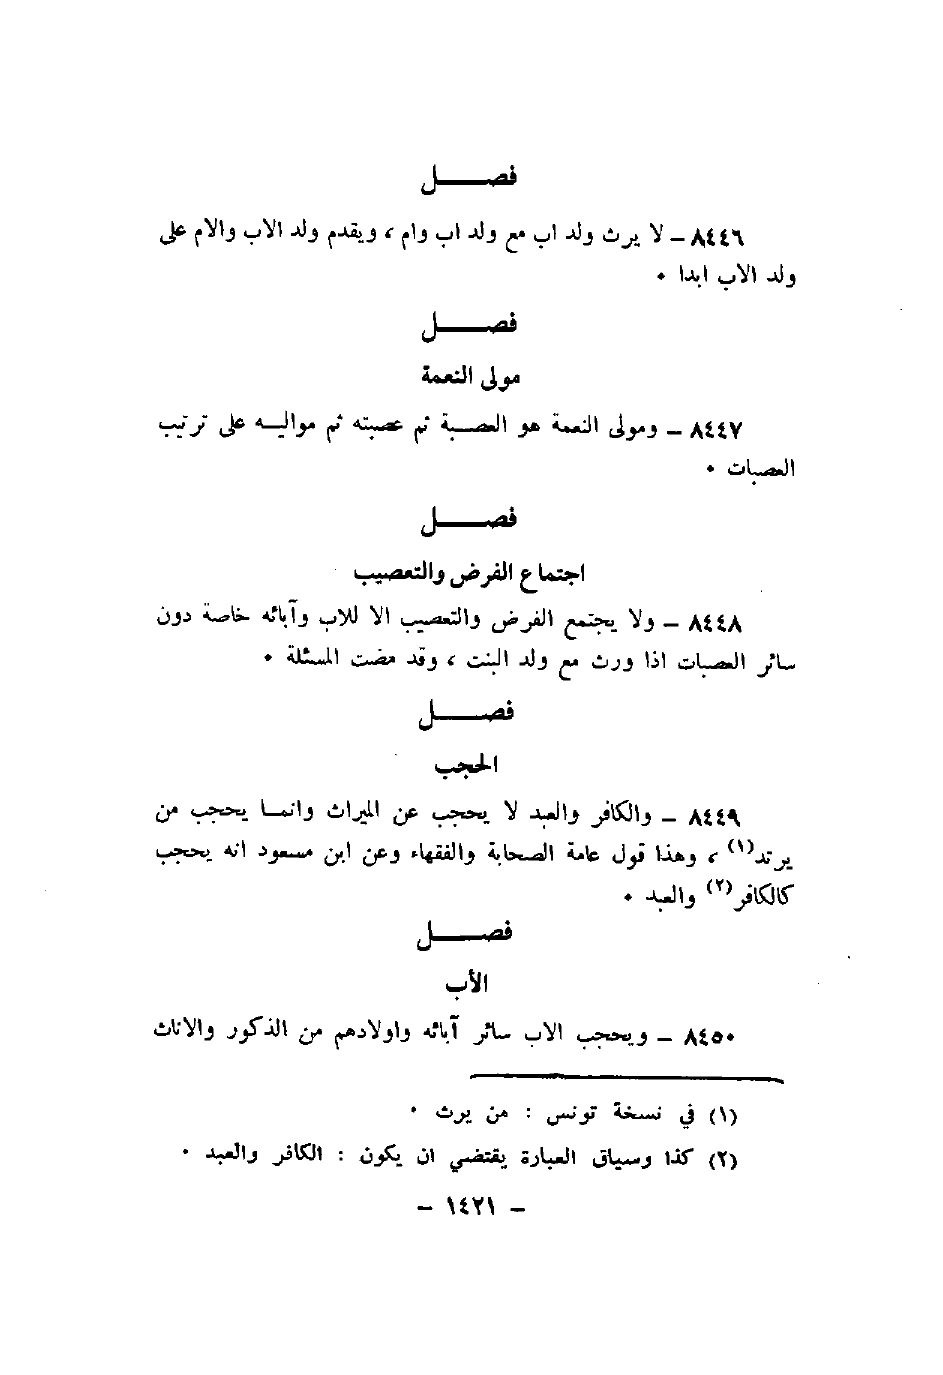 فصــــل
٨٤٤٦ ــ لا يرث ولد اب مع ولد اب وام ، ويقدم ولد الاب والام على
ولد الاب ابدا ٠
فصــــل
مولى النعمة
٨٤٤٧ ــ ومولى النعمة هو العصـبة ثم عصبته ثم مواليـه على ترتيب
العصبات ٠
فصــــل
اجتماع الفرض والتعصيب
٨٤٤٨ ــ ولا يجتمع الفرض والتعصيب الا للاب وآبائه خاصة دون
سائر العصبات اذا ورث مع ولد البنت ، وقد مضت المسئلة ٠
فصــــل
الحجب
٨٤٤٩ ــ والكافر والعبد لا يحجب عن الميراث وانمـا يحجب من
يرتد(١) ، وهذا قول عامة الصحابة والفقهاء وعن ابن مسعود انه يحجب
كالكافر(٢) والعبد ٠
فصــــل
الأب
٨٤٥٠ ــ ويحجب الاب سائر آبائه واولادهم من الذكور والاناث
(١) في نسخة تونس : من يرث ٠
(٢) كذا وسياق العبارة يقتضي ان يكون : الكافر والعبد ٠
ــ ١٤٢١ ــ